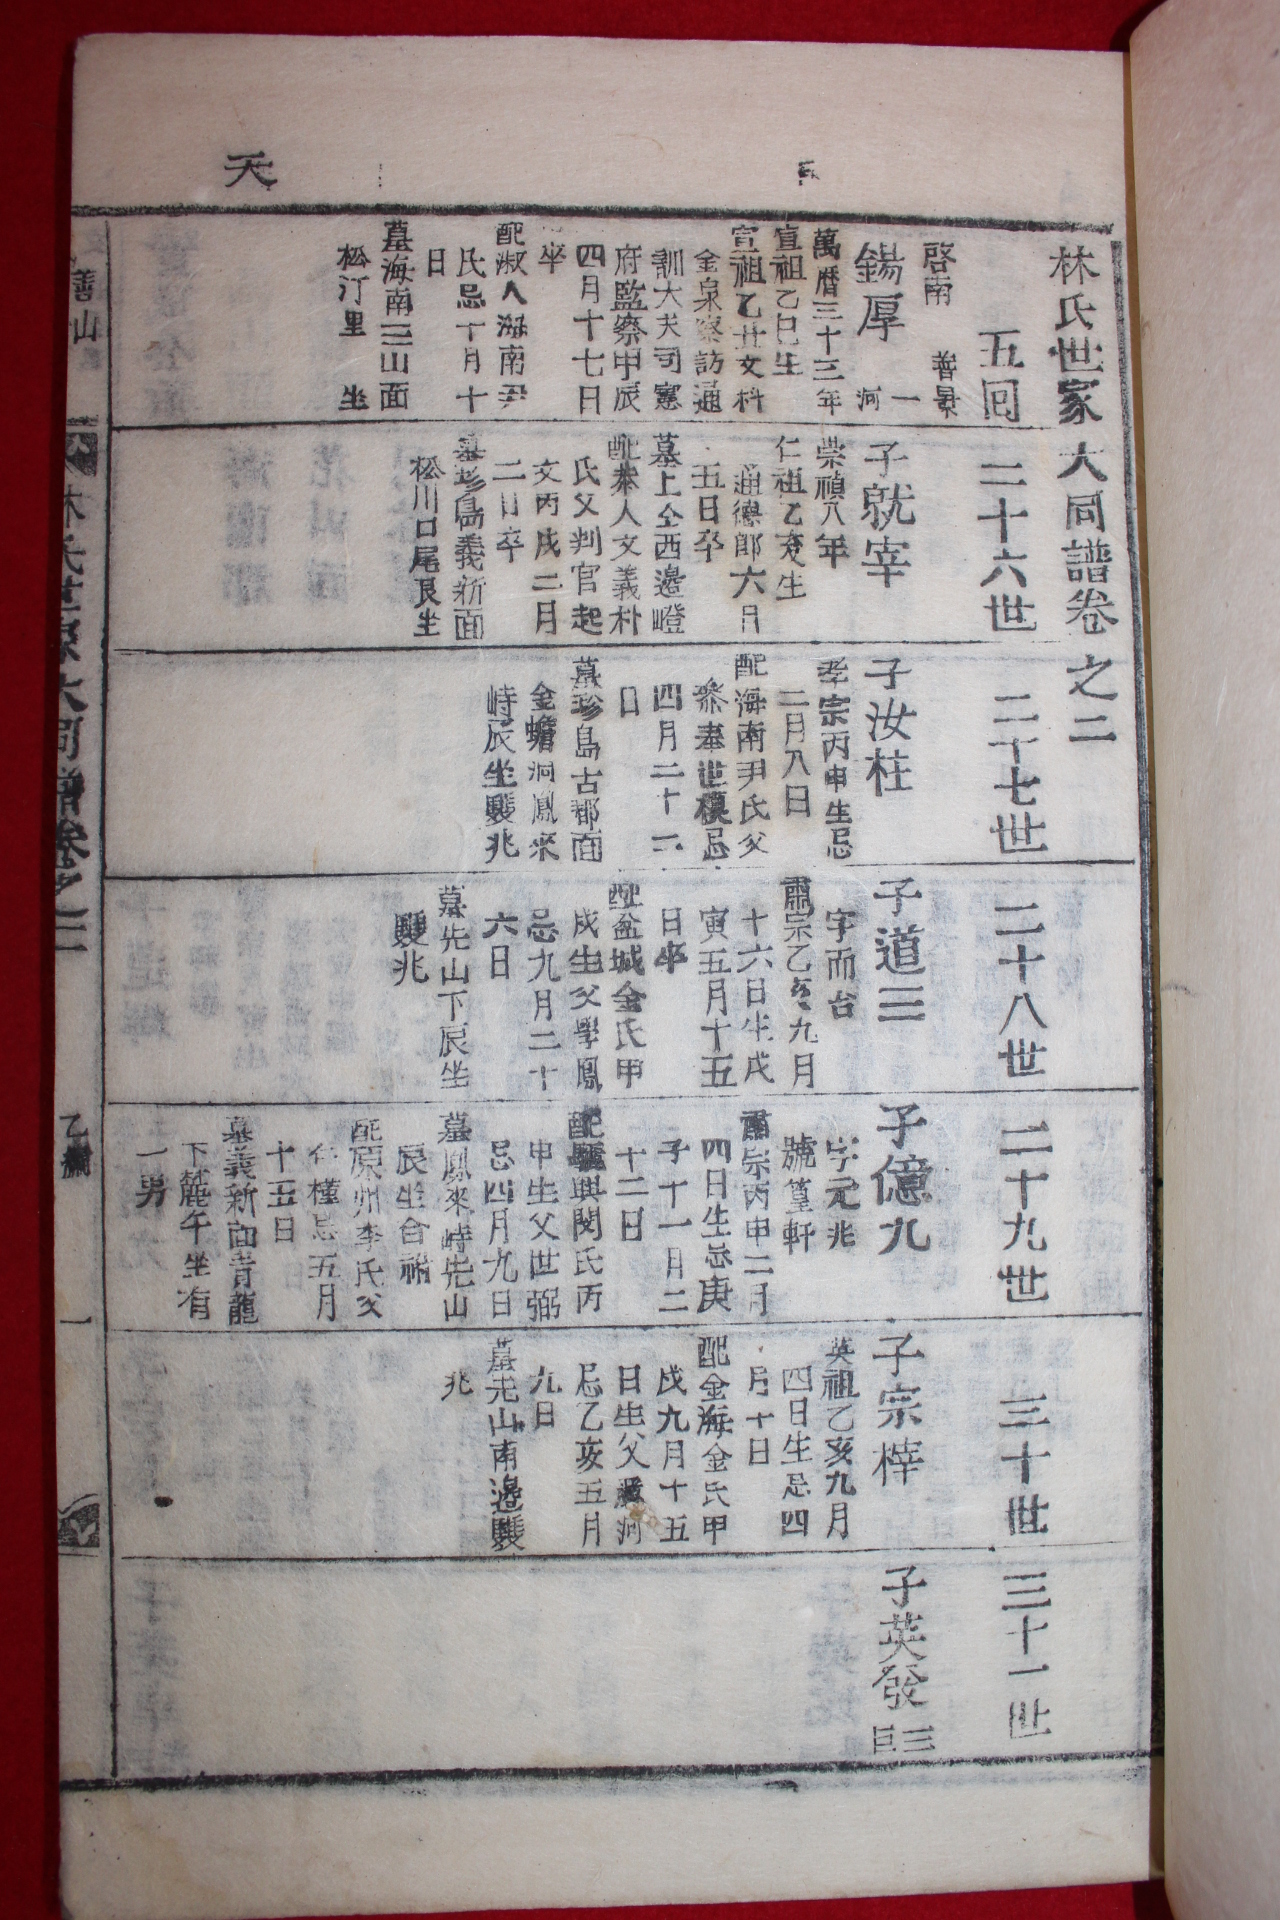 天
林氏世家大同譜卷之二
五回
二十六世
二十七世
二十八世
二十九世
三十世
三十一世
啓南
善景
錫厚
一河
萬曆三十三年
宣祖乙巳生
宣祖乙丑文科
金泉察訪通
訓大夫司憲
府監察甲辰
四月十七日
卒
配淑人海南尹
氏忌十月十
日
墓海南三山面
松汀里 坐
子就宰
崇禎八年
仁祖乙亥生
通德郎六月
五日卒
墓上仝西邊嶝
配恭人文義朴
氏父判官起
文丙戌二月
二日卒
墓珍島義新面
松川口尾艮坐
子汝柱
孝宗丙申生忌
二月八日
配海南尹氏父
叅奉世積忌
四月二十二
日
墓珍島古郡面
金蟾洞鳳來
峙辰坐雙兆
子道三
字而台
肅宗乙亥九月
十六日生戊
寅五月十五
日卒
配盆城金氏甲
戌生父學鳳
忌九月二十
六日
墓先山下辰坐
雙兆
子億九
字元兆
號篁軒
肅宗丙申二月
四日生忌庚
子十一月二
十二日
配驪興閔氏丙
申生父世弼
忌四月九日
墓鳳來峙先山
辰坐合祔
配原州李氏父
仁權忌五月
十五日
墓義新面靑龍
下麓午坐有
一男
子宗梓
英祖乙亥九月
四日生忌四
月十日
配金海金氏甲
戌九月十五
日生父 河
忌乙亥五月
九日
墓先山南邊雙
兆
子英發
三巨
善山
林氏世家大同譜卷之二
一